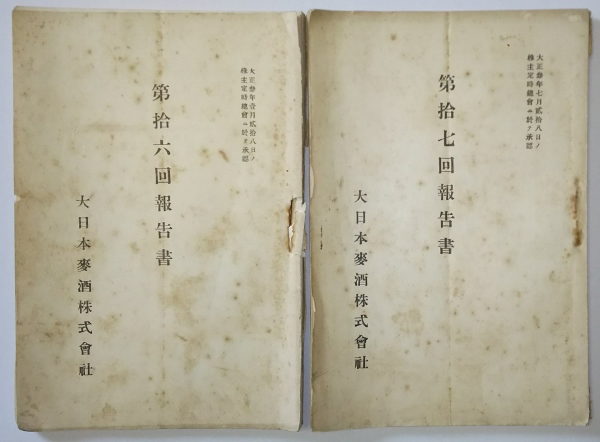 大正叄年壹月貳拾八日ノ
株主定時總會ニ於テ承認
第拾六回報告書
大日本麥酒株式會社
大正叄年七月貳拾八日ノ
株主定時總會ニ於テ承認
第拾七回報告書
大日本麥酒株式會社